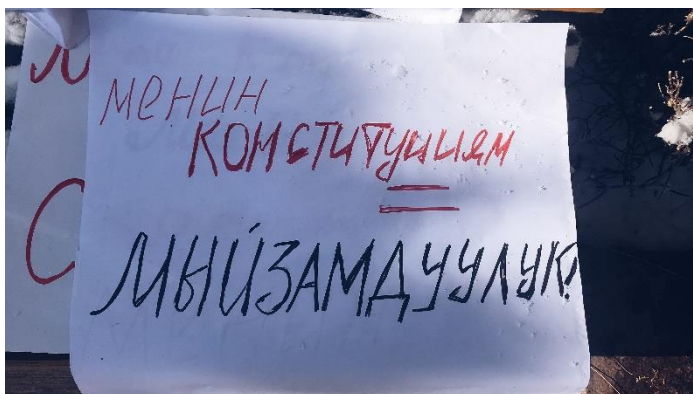 МЕНИН
КОНСТИТУЦИЯМ
=
МЫЙЗАМДУУЛУК!